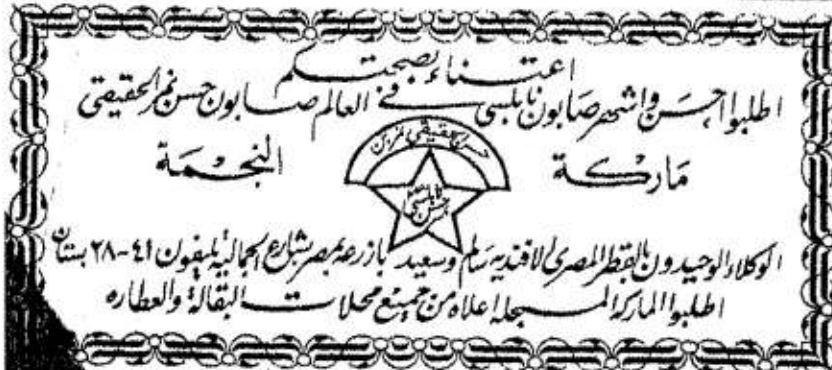 اعتناء بصحتكم
اطلبوا احسن واشهر صابون نابلسى فى العالم صابون حسن نمر الحقيقى
ماركة
النجمة
حسن
نابلسى
الوكلاء الوحيدون بالقطر المصرى لافنديه سالم وسعيد بازرعه بمصر بشارع الجماليه تليفون ٤١-٢٨ بستان
اطلبوا الماركه المسجله اعلاه من جميع محلات البقالة والعطاره